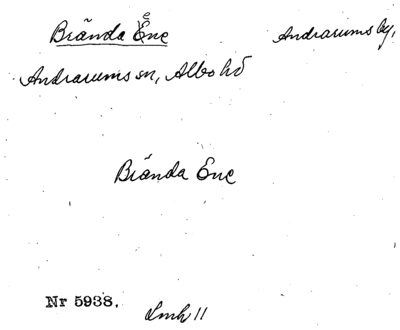 Brända Ene Andrarums by,
Andrarums sn, Albo hd
Brända Ene
Nr 5938. Lmh 11